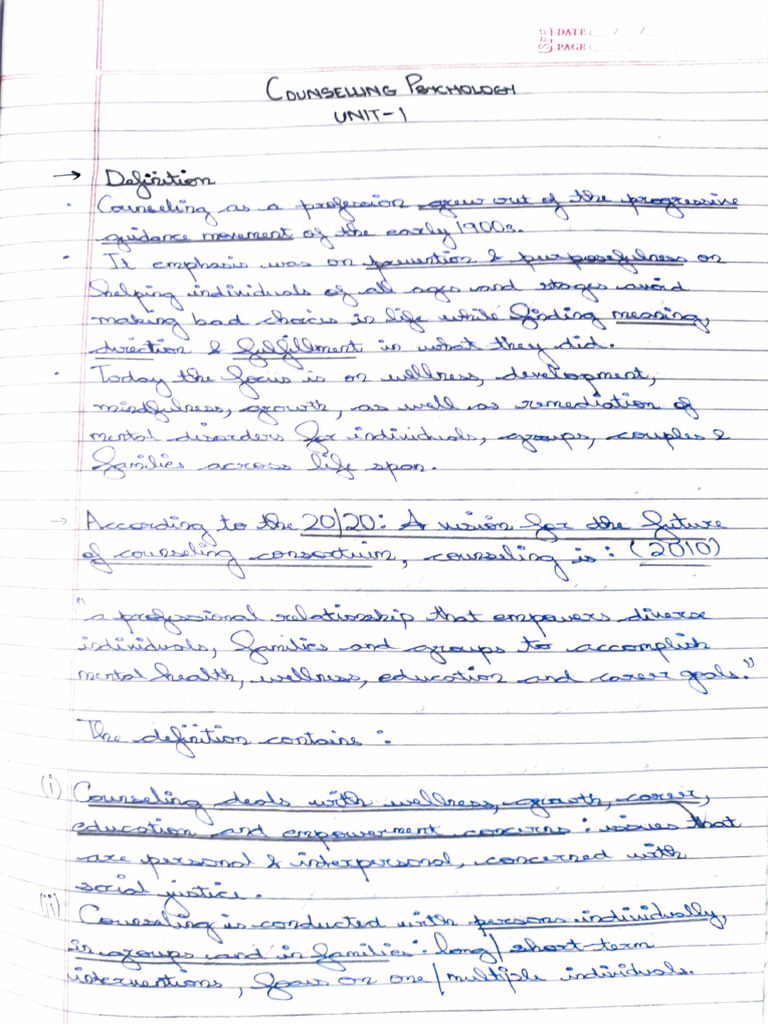 DATE: __/__/__
PAGE:
COUNSELLING PSYCHOLOGY
UNIT-1
→ Definition
• Counseling as a profession grew out of the progressive
guidance movement of the early 1900s.
• It emphasis was on prevention & purposefulness on
helping individuals of all ages and stages avoid
making bad choices in life while finding meaning,
direction & fulfillment in what they did.
• Today the focus is on wellness, development,
mindfulness, growth, as well as remediation of
mental disorders for individuals, groups, couples &
families across life span.
→ According to the 20/20: A vision for the future
of counseling consortium, counseling is: (2010)
"a professional relationship that empowers diverse
individuals, families and groups to accomplish
mental health, wellness, education and career goals."
The definition contains:
(i) Counseling deals with wellness, growth, career,
education and empowerment concerns: issues that
are personal & interpersonal, concerned with
social justice.
(ii) Counseling is conducted with persons individually,
in groups and in families: long/short-term
interventions, focus on one/multiple individuals.